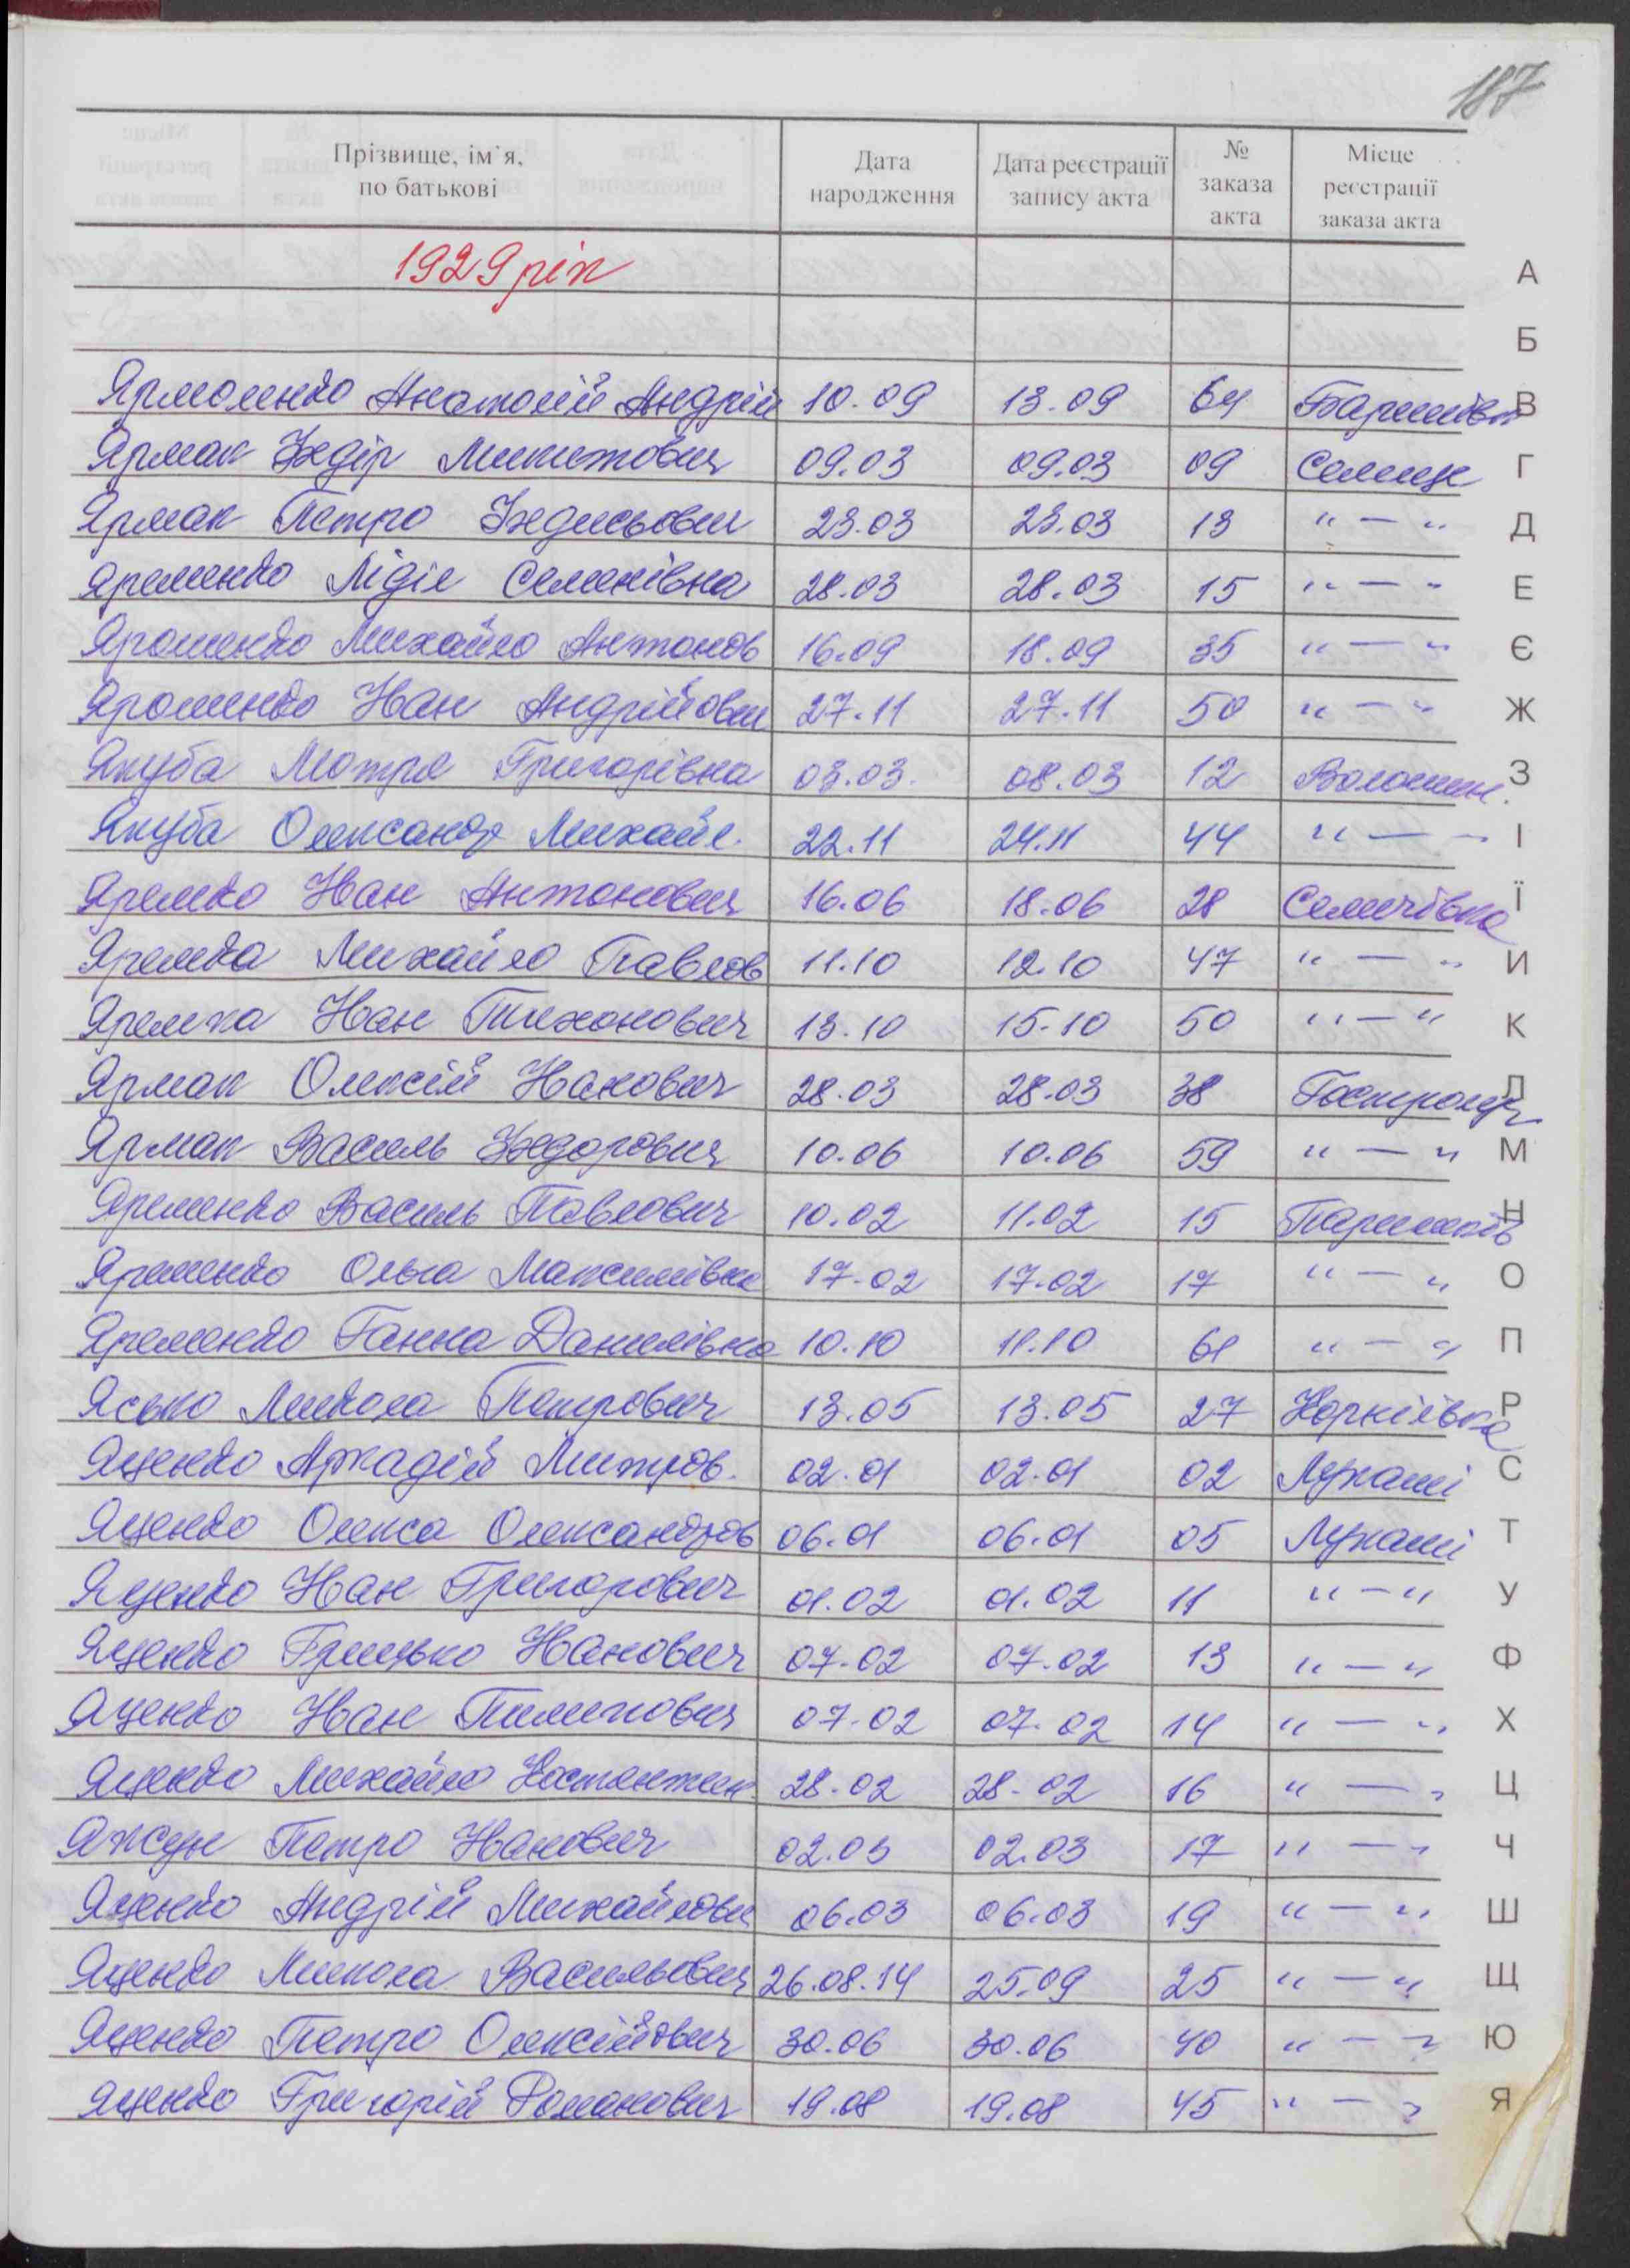 187
Прізвище, ім`я, по батькові | Дата народження | Дата реєстрації запису акта | № заказа акта | Місце реєстрації заказа акта
1929 рік
Ярмоленко Анатолій Андрій 10.09 13.09 64 Баришівк
Ярмак Федір Микитович 09.03 09.03 09 Селище
Ярмак Петро Федосьович 23.03 23.03 13 " — "
Яременко Лідія Семенівна 28.03 28.03 15 " — "
Ярошенко Михайло Антонов 16.09 18.09 35 " — "
Ярошенко Іван Андрійович 27.11 27.11 50 " — "
Якуба Мотря Григорівна 03.03. 08.03 12 Волошин.
Якуба Олександр Михайл. 22.11 24.11 44 " — "
Яремко Іван Антонович 16.06 18.06 28 Семенівка
Яремка Михайло Павлов 11.10 12.10 47 " — "
Яремка Іван Тихонович 13.10 15.10 50 " — "
Ярмак Олексій Іванович 28.03 28.03 38 Гостролуч
Ярмак Василь Федорович 10.06 10.06 59 " — "
Яременко Василь Павлович 10.02 11.02 15 Паришків
Яременко Ольга Максимівна 17.02 17.02 17 " — "
Яременко Ганна Данилівна 10.10 11.10 61 " — "
Ясько Микола Петрович 13.05 13.05 27 Корніївка
Яценко Аркадій Митров. 02.01 02.01 02 Лукаші
Яценко Олекса Олександров 06.01 06.01 05 Лукаші
Яценко Іван Григорович 01.02 01.02 11 " — "
Яценко Грицько Іванович 07.02 07.02 13 " — "
Яценко Іван Пилипович 07.02 07.02 14 " — "
Яценко Михайло Костянтин. 28.02 28.02 16 " — "
Петро Іванович 02.03 02.03 17 " — "
Яценко Андрій Михайлович 06.03 06.03 19 " — "
Яценко Микола Васильович 26.08.14 25.09 25 " — "
Яценко Петро Олексійович 30.06 30.06 40 " — "
Яценко Григорій Романович 19.08 19.08 45 " — "
А
Б
В
Г
Д
Е
Є
Ж
З
І
Ї
И
К
Л
М
Н
О
П
Р
С
Т
У
Ф
Х
Ц
Ч
Ш
Щ
Ю
Я